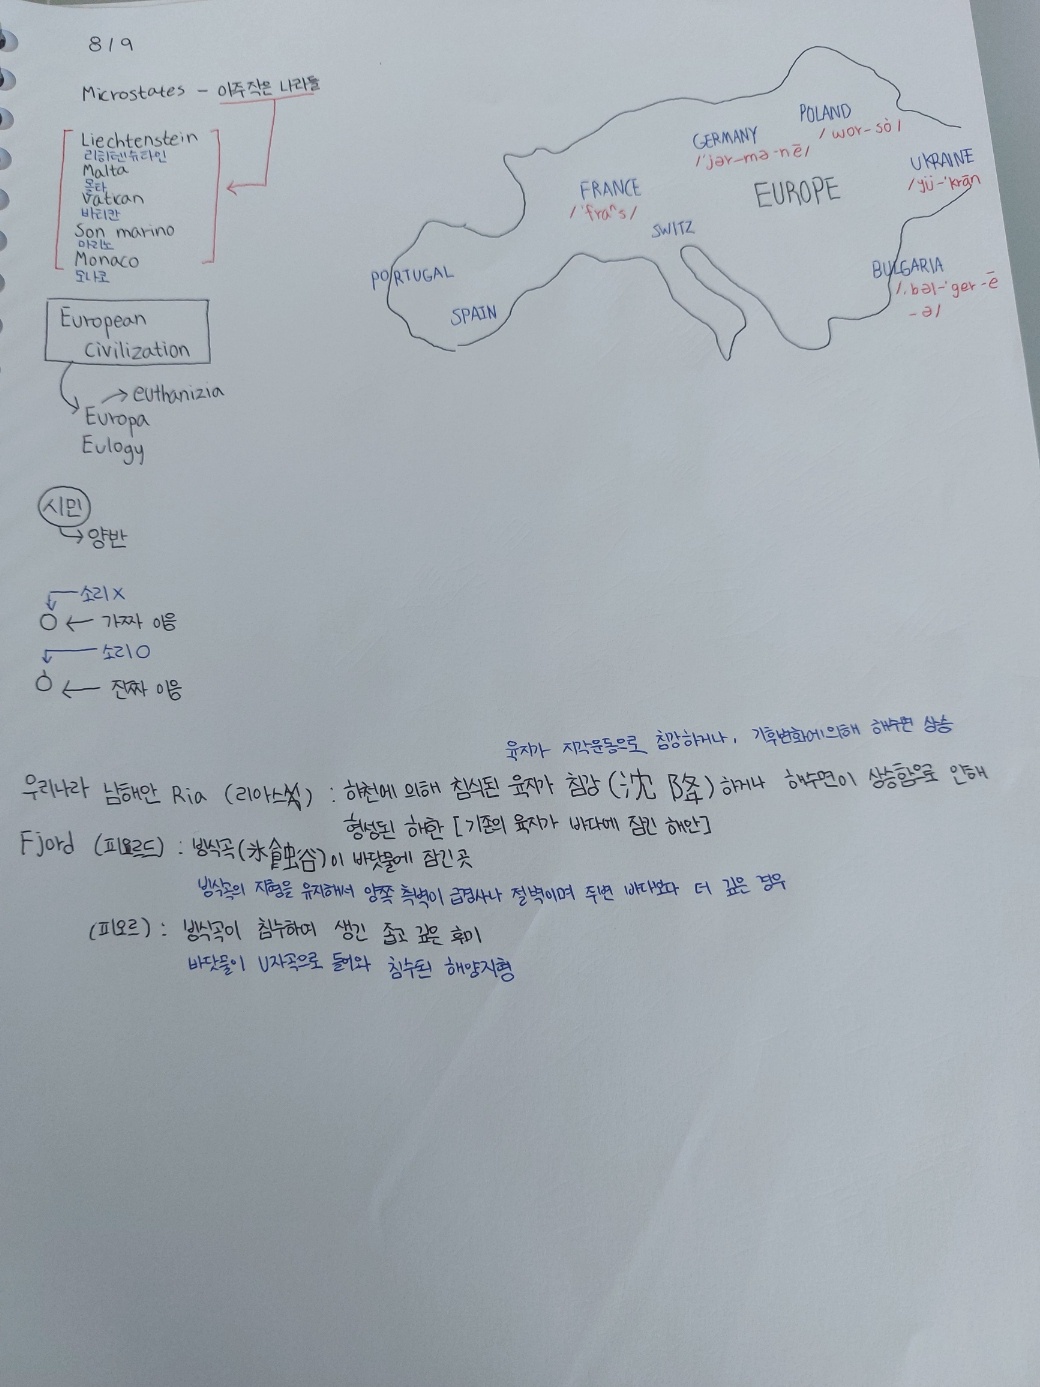 8/9
Microstates - 아주작은 나라들
Liechtenstein
리히텐슈타인
Malta
몰타
Vatican
바티칸
San marino
마리노
Monaco
모나코
European
Civilization
→ euthanizia
Europa
Eulogy
시민
양반
소리X
가짜 이응
소리O
진짜 이응
POLAND
/wor-sò/
GERMANY
/'jər-mə-nē/
UKRAINE
/yü-'krān
FRANCE
/'fraⁿs/
EUROPE
SWITZ
PORTUGAL
SPAIN
BULGARIA
/ˌbəl-'ger-ē
-ə/
육지가 지각운동으로 침강하거나, 기후변화에의해 해수면 상승
우리나라 남해안 Ria (리아스식) : 하천에 의해 침식된 육지가 침강(沈降)하거나 해수면이 상승함으로 인해
형성된 해안 [기존의 육지가 바다에 잠긴 해안]
Fjord (피요르드) : 빙식곡(氷蝕谷)이 바닷물에 잠긴곳
빙식곡의 지형을 유지해서 양쪽 측벽이 급경사나 절벽이며 주변 바다보다 더 깊은 경우
(피오르) : 빙식곡이 침수하여 생긴 좁고 깊은 후미
바닷물이 U자곡으로 들어와 침수된 해양지형